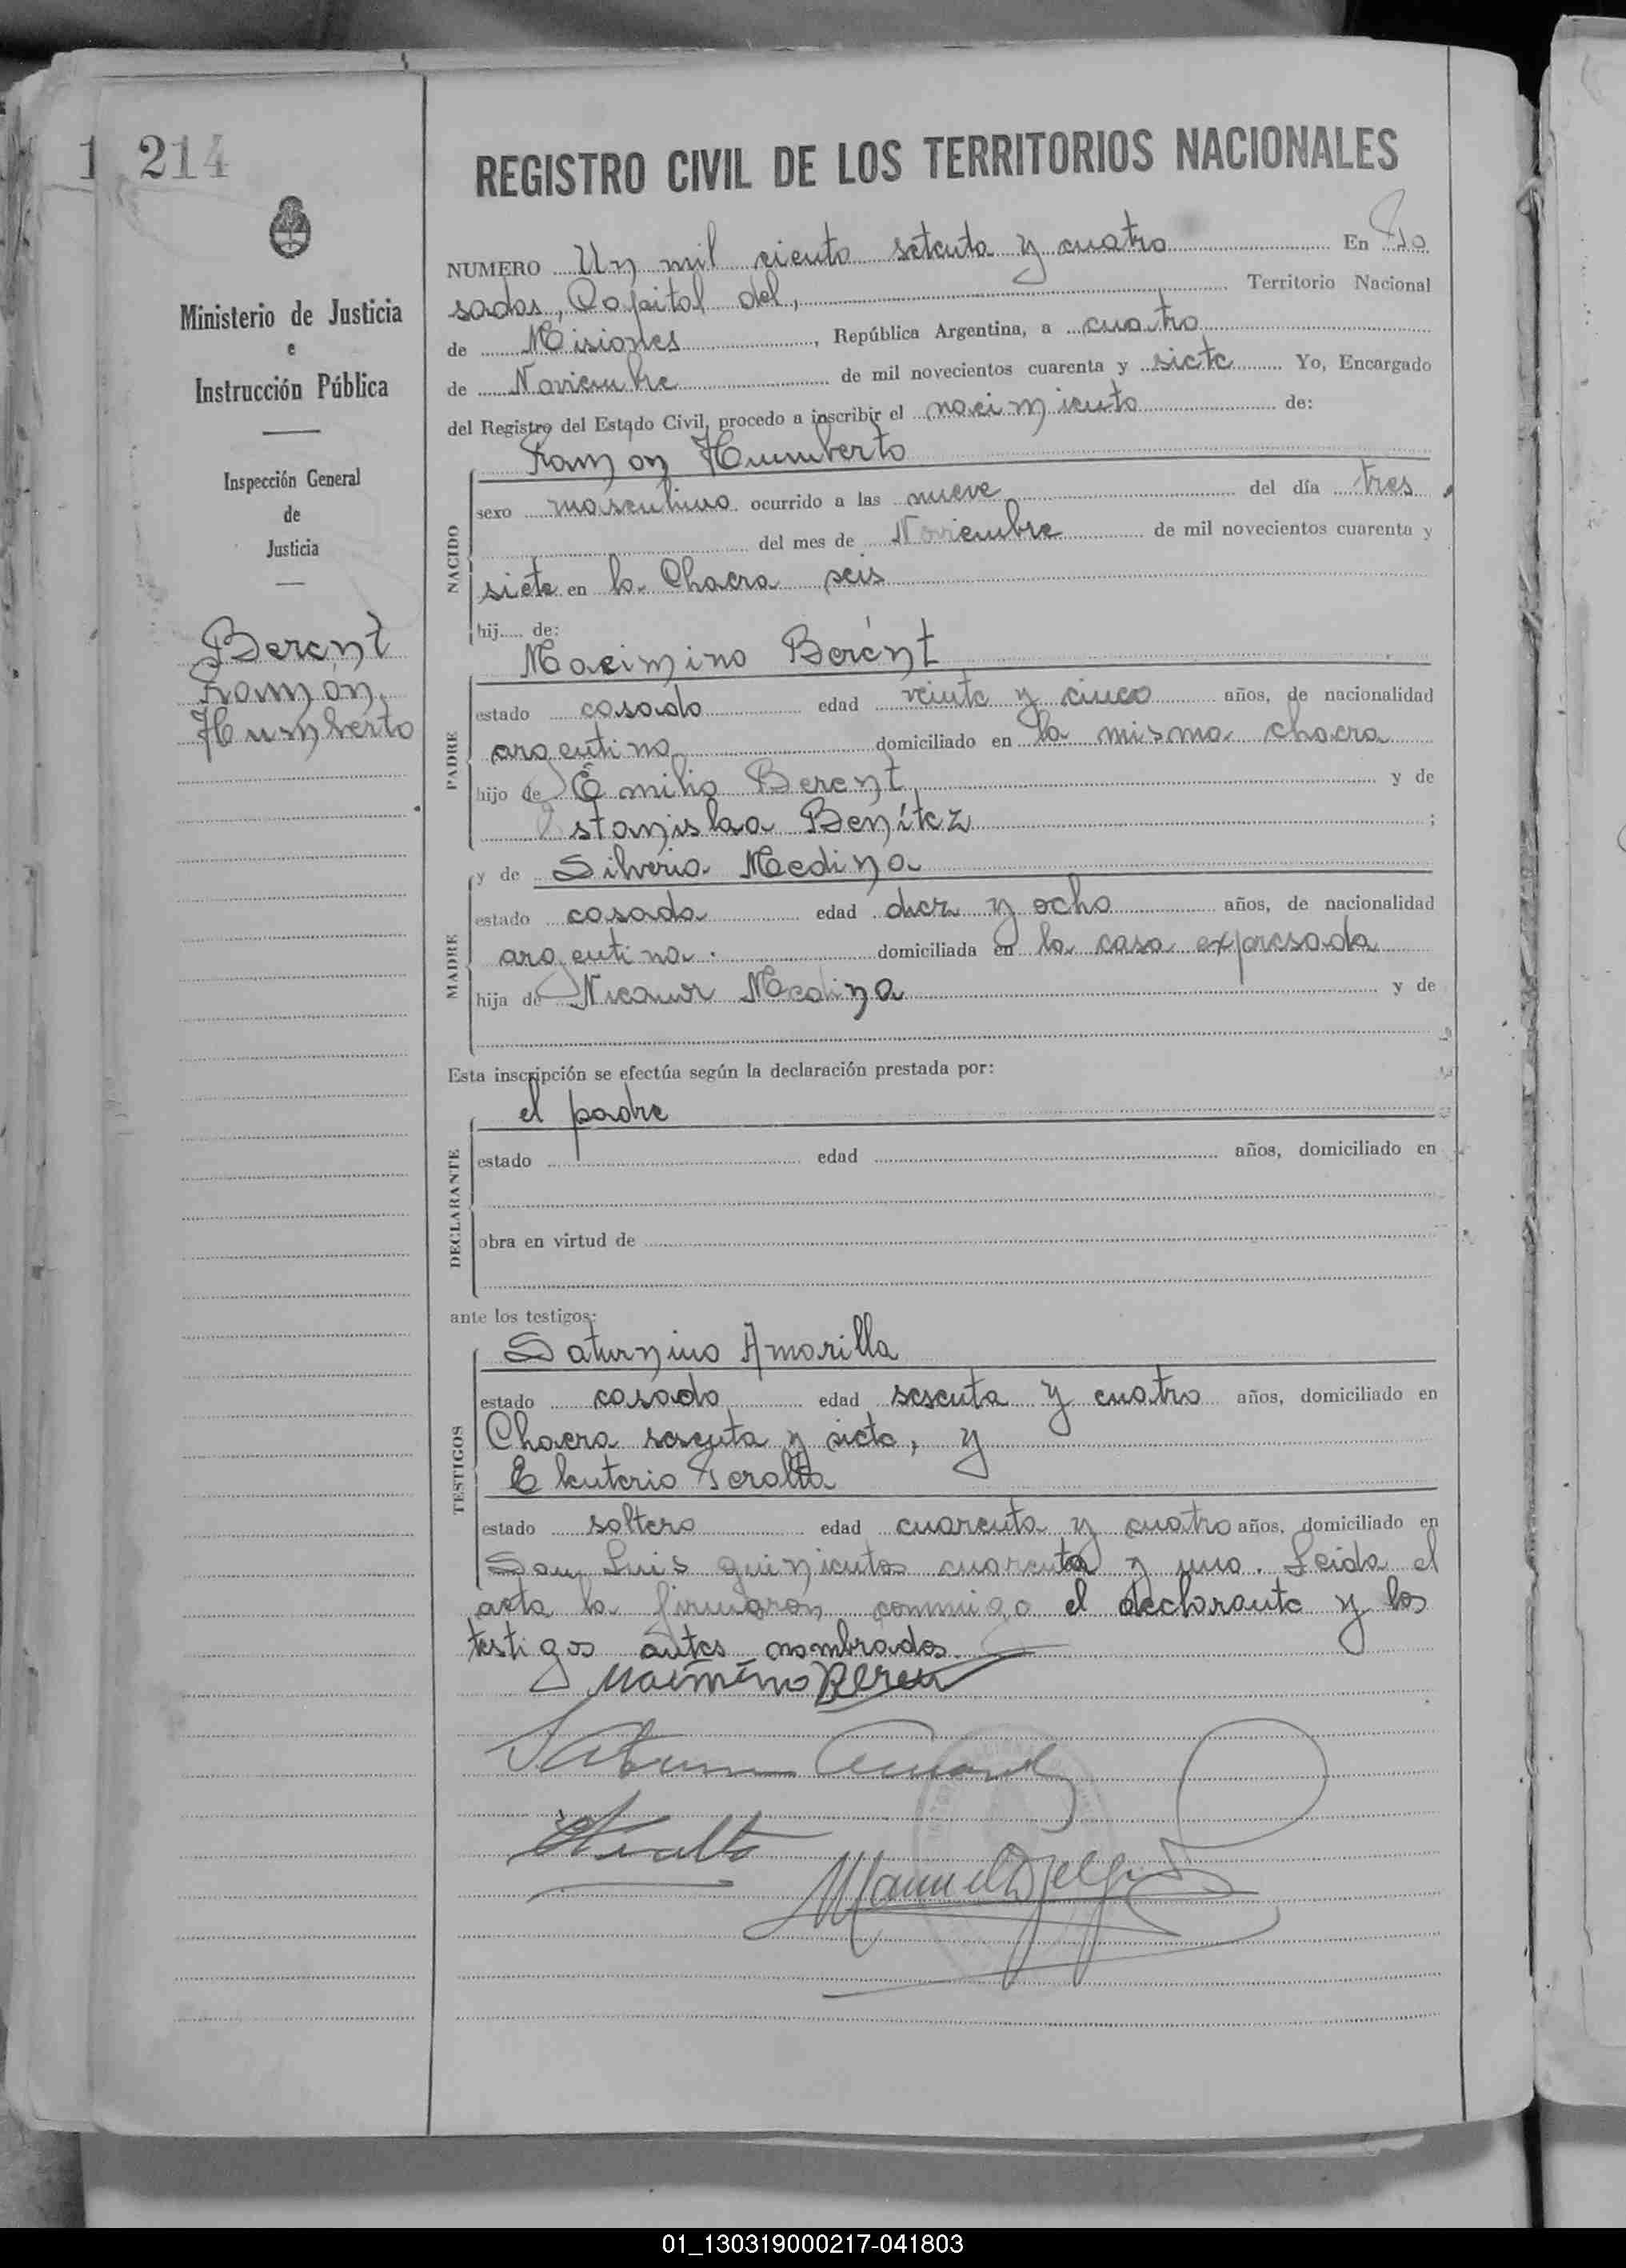 1 214
REGISTRO CIVIL DE LOS TERRITORIOS NACIONALES
Ministerio de Justicia
e
Instrucción Pública
Inspección General
de
Justicia
Berent
Ramon
Humberto
NUMERO Un mil ciento setenta y cuatro En Po
sadas, Capital del, Territorio Nacional
de Misiones, República Argentina, a cuatro
de Noviembre de mil novecientos cuarenta y siete Yo, Encargado
del Registro del Estado Civil, procedo a inscribir el nacimiento de:
NACIDO
Ramon Humberto
sexo masculino ocurrido a las nueve del día tres
del mes de Noviembre de mil novecientos cuarenta y
siete en la Chacra seis
hij..... de:
PADRE
Maximino Berent
estado casado edad veinte y cinco años, de nacionalidad
argentino domiciliado en la misma chacra
hijo de Emilio Berent y de
Estanislaa Benítez ;
MADRE
y de Silveria Medina
estado casada edad diez y ocho años, de nacionalidad
argentina. domiciliada en la casa expresada
hija de Nicanor Medina y de
Esta inscripción se efectúa según la declaración prestada por:
DECLARANTE
el padre
estado edad años, domiciliado en
obra en virtud de
ante los testigos:
TESTIGOS
Saturnino Amarilla
estado casado edad sesenta y cuatro años, domiciliado en
Chacra sesenta y siete, y
Eleuterio Peralta
estado soltero edad cuarenta y cuatro años, domiciliado en
San Luis quinientos cuarenta y uno. Leida el
acta la firmaron conmigo el declarante y los
testigos antes nombrados.
Maximino Beren
EPeralta
01_130319000217-041803